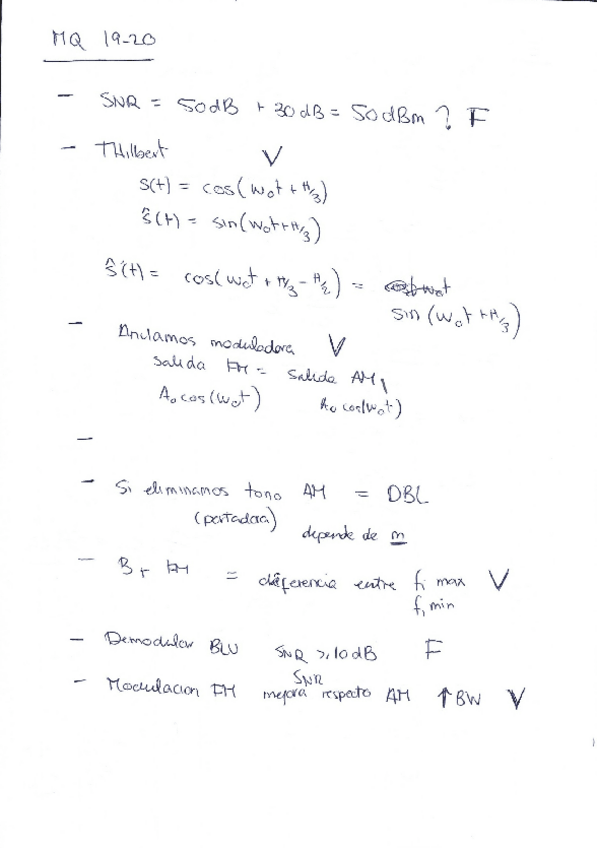 MQ 19-20
- SNR = 50dB + 30dB = 50dBm ? F
- THilbert V
S(t) = cos(w₀t + π/3)
ŝ(t) = sin(w₀t + π/3)
ŝ(t) = cos(w₀t + π/3 - π/2) =
sin(w₀t + π/3)
- Anulamos moduladora V
Salida FM = Salida AM
A₀ cos(w₀t) A₀ cos(w₀t)
-
- Si eliminamos tono AM = DBL
(portadora)
depende de m
- BT FM = diferencia entre fi max V
fi min
- Demodular BLU SNR ≥ 10dB F
- Modulacion FM mejora SNR respecto AM ↑BW V